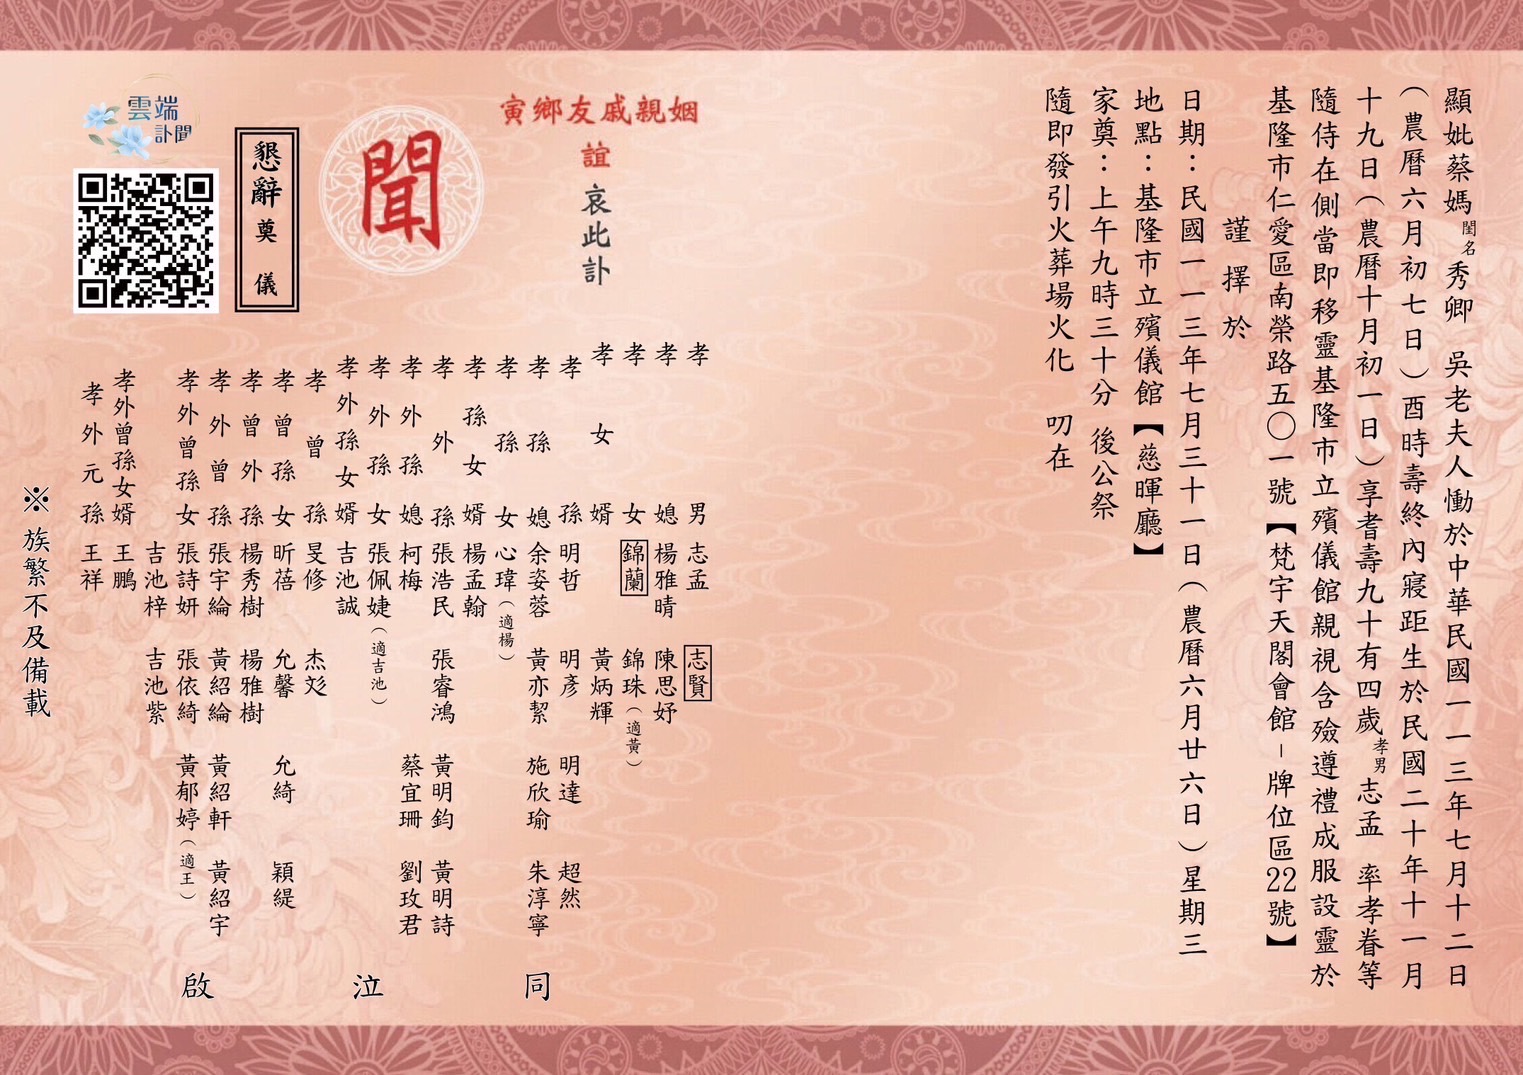 顯妣蔡媽閨名秀卿 吳老夫人慟於中華民國一一三年七月十二日
（農曆六月初七日）酉時壽終內寢距生於民國二十年十一月
十九日（農曆十月初一日）享耆壽九十有四歲孝男志孟 率孝眷等
隨侍在側當即移靈基隆市立殯儀館親視含殮遵禮成服設靈於
基隆市仁愛區南榮路五〇一號【梵宇天閣會館－牌位區22號】
謹擇於
日期：民國一一三年七月三十一日（農曆六月廿六日）星期三
地點：基隆市立殯儀館【慈暉廳】
家奠：上午九時三十分 後公祭
隨即發引火葬場火化 叨在
姻親戚友鄉寅
誼
哀此訃
聞
懇辭奠儀
雲端
訃聞
孝男 志孟 志賢
孝媳 楊雅晴 陳思妤
孝女 錦蘭 錦珠（適黃）
孝女婿 黃炳輝
孝孫 明哲 明彥 明達 超然
孝孫媳 余姿蓉 黃亦絜 施欣瑜 朱淳寧
孝孫女 心瑋（適楊）
孝孫女婿 楊孟翰
孝外孫 張浩民 張睿鴻 黃明鈞 黃明詩
孝外孫媳 柯梅 蔡宜珊 劉玫君
孝外孫女 張佩婕（適吉池）
孝外孫女婿 吉池誠
孝曾孫 旻修 杰彣
孝曾孫女 昕蓓 允馨 允綺 穎緹
孝曾外孫 楊秀樹 楊雅樹
孝外曾孫 張宇綸 黃紹綸 黃紹軒 黃紹宇
孝外曾孫女 張詩妍 張依綺 黃郁婷（適王）
吉池梓 吉池紫
孝外曾孫女婿 王鵬
孝外元孫 王祥
同泣啟
※族繁不及備載